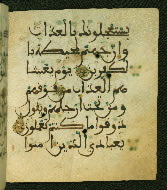 يستعجلونك بالعذاب
وان جهنم لمحيطة با
لكفرين يوم يغشا
هم العذاب من فوقهم
ومن تحت ارجلهم ويقول
ذوقوا ما كنتم تعملون
يعبادي الذين امنوا